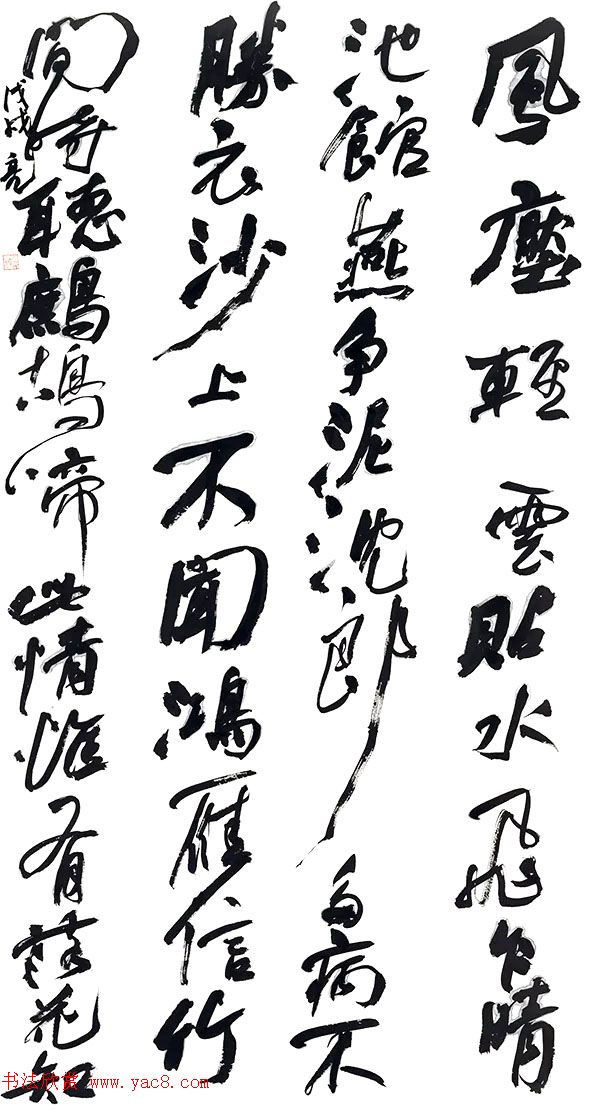 風壓輕雲貼水飛乍晴
池館燕争泥沈郎多病不
勝衣沙上不聞鴻雁信竹
間時聽鷓鴣啼此情惟有落花知
戊戌亮
书法欣赏 www.yac8.com